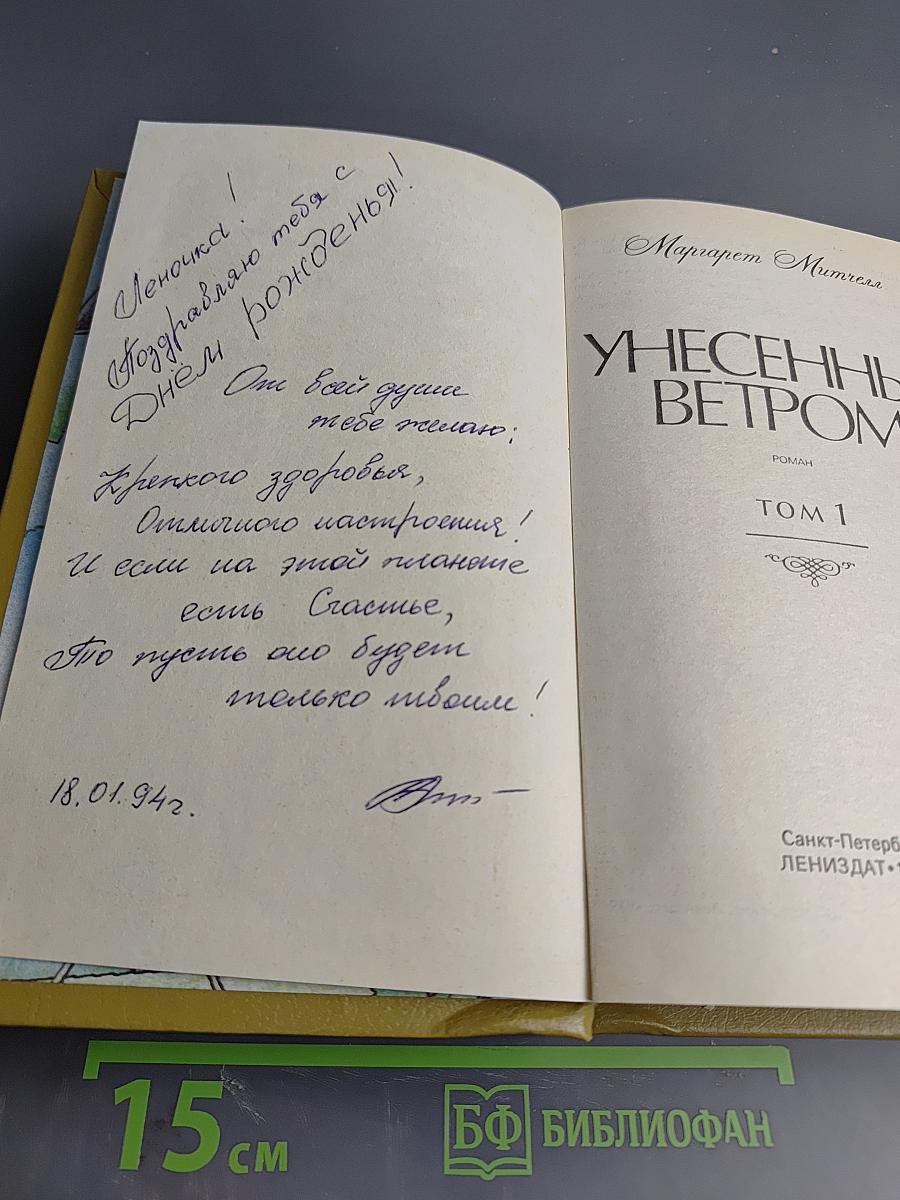 Леночка!
Поздравляю тебя с
Днём рожденья!
От всей души
тебе желаю:
Крепкого здоровья,
Отличного настроения!
И если на этой планете
есть Счастье,
То пусть оно будет
только твоим!
18.01.94г.
Маргарет Митчелл
УНЕСЕНН
ВЕТРОМ
РОМАН
ТОМ 1
Санкт-Петерб
ЛЕНИЗДАТ•1
15 см
БФ БИБЛИОФАН